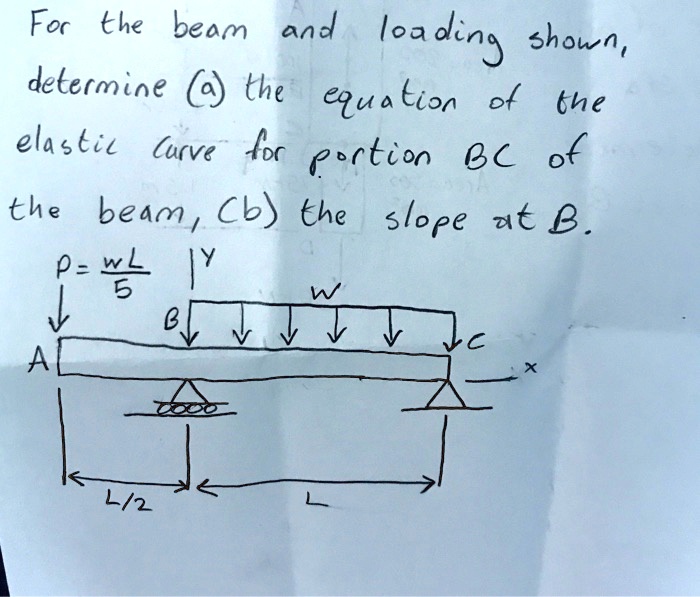 For the beam and loading shown,
determine (a) the equation of the
elastic curve for portion BC of
the beam, (b) the slope at B.
P = wL/5
Y
w
B
C
A
x
L/2
L